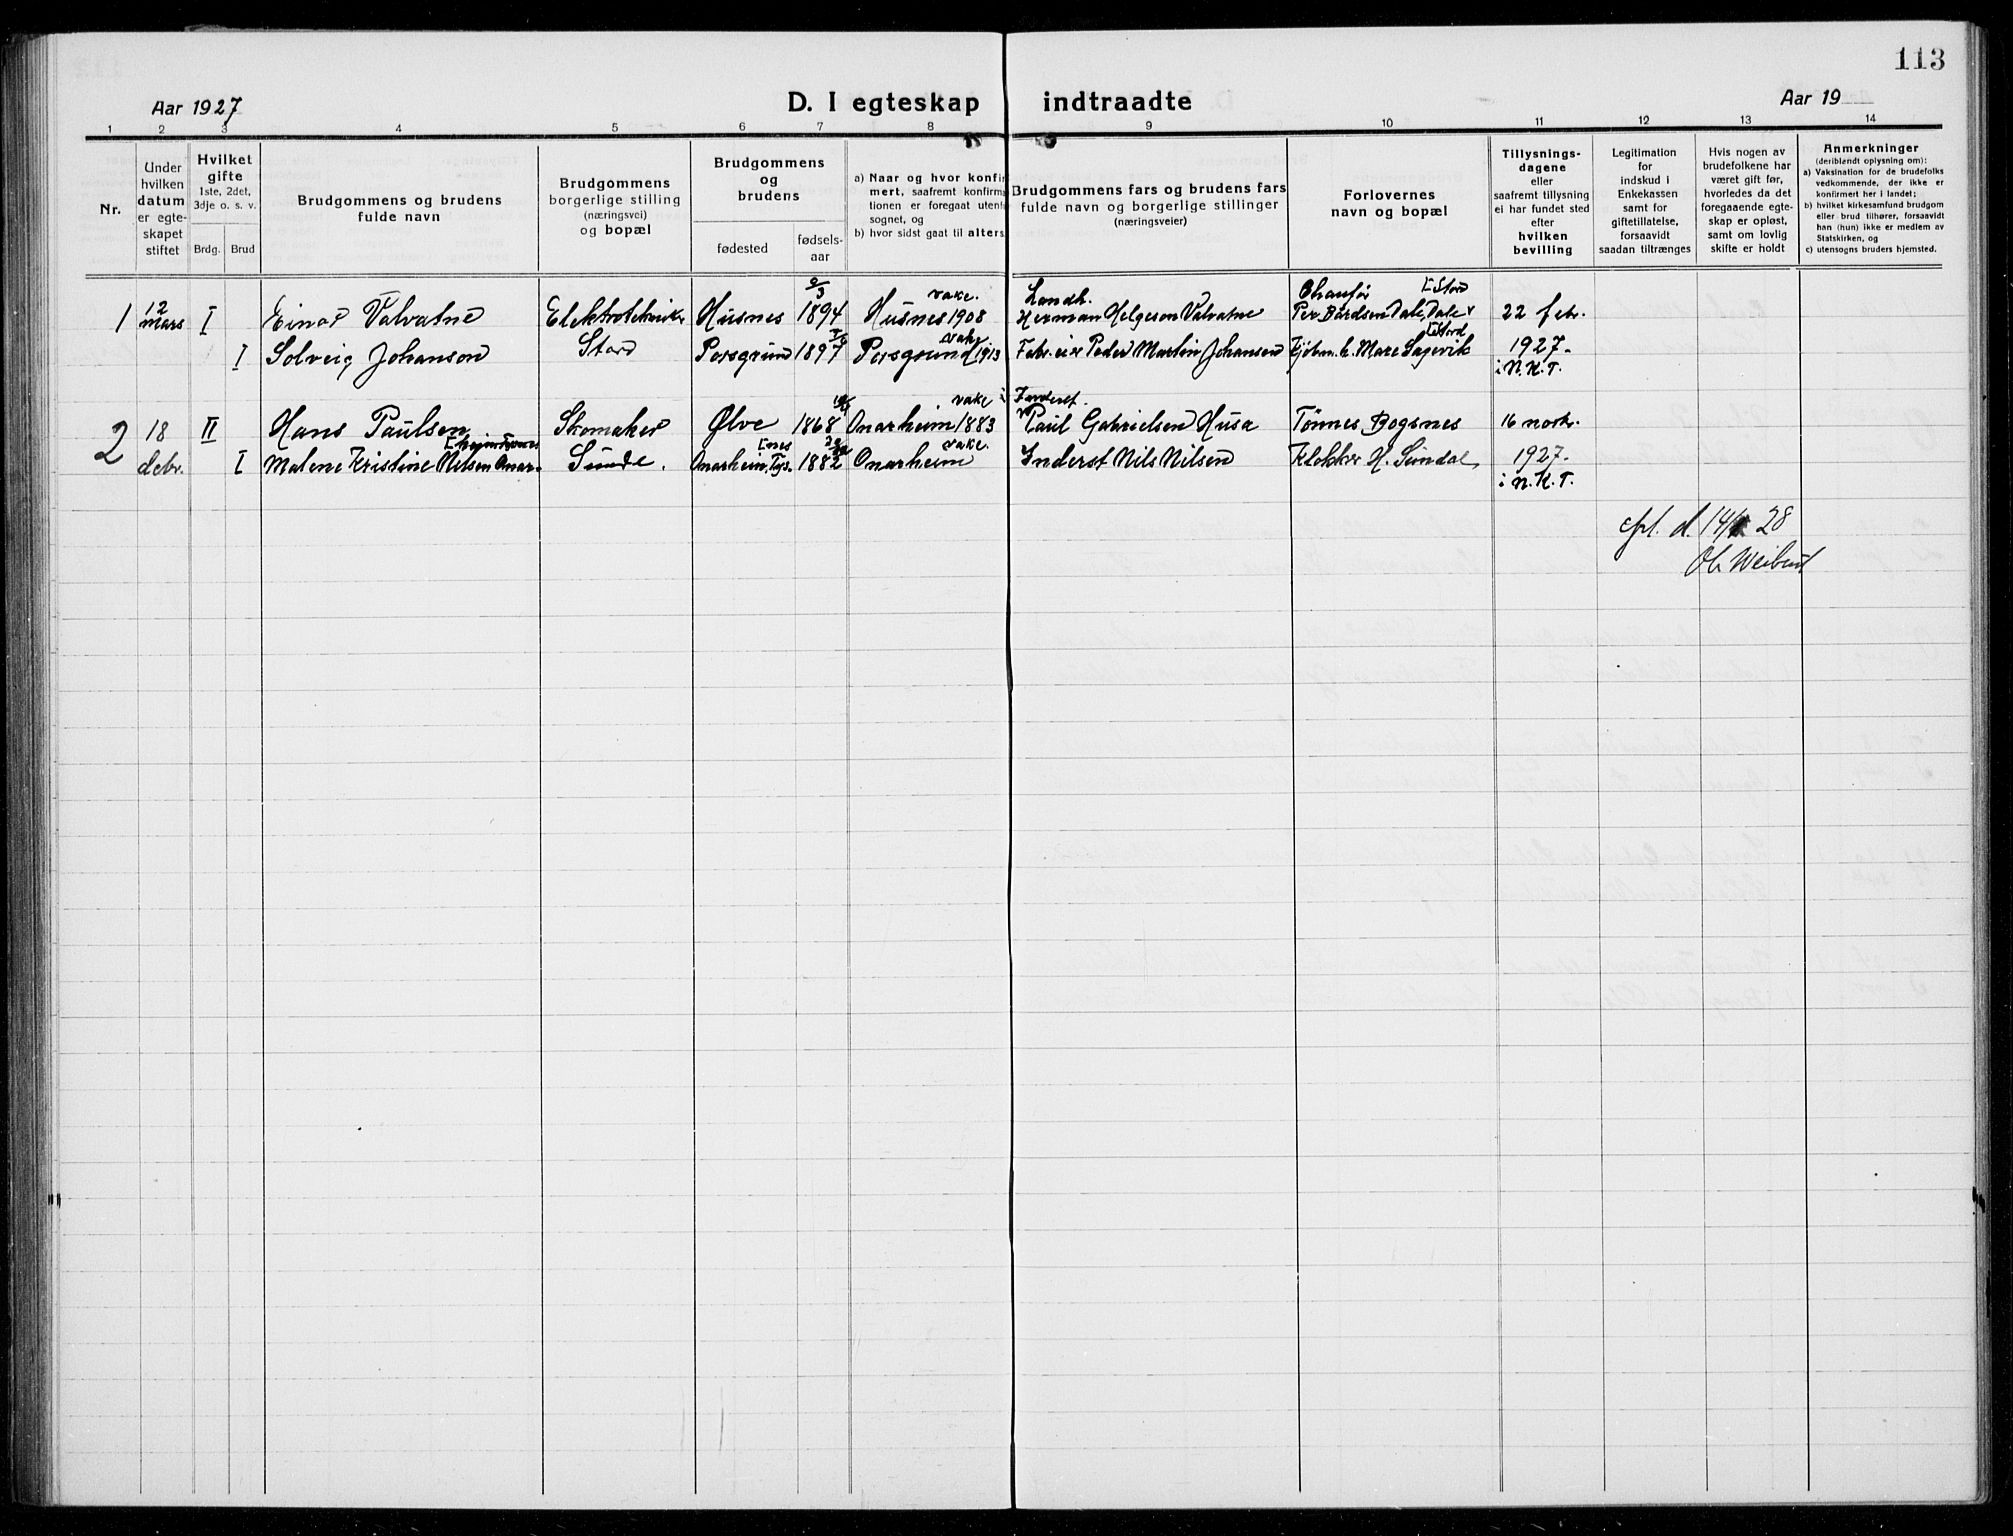 113
Aar 1927
D. I egteskap indtraadte
Aar 19
1 2 3 4 5 6 7 8 9 10 11 12 13 14
Nr.
Under
hvilken
datum
er egte-
skapet
stiftet
Hvilket
gifte
1ste, 2det,
3dje o. s. v.
Brdg. Brud
Brudgommens og brudens
fulde navn
Brudgommens
borgerlige stilling
(næringsvei)
og bopæl
Brudgommens
og
brudens
fødested
fødsels-
aar
a) Naar og hvor konfir
mert, saafremt konfirm
tionen er foregaat utenf
sognet, og
b) hvor sidst gaat til alters
Brudgommens fars og brudens fars
fulde navn og borgerlige stillinger
(næringsveier)
Forlovernes
navn og bopæl
Tillysnings-
dagene
eller
saafremt tillysning
ei har fundet sted
efter
hvilken
bevilling
Legitimation
for
indskud i
Enkekassen
samt for
giftetillatelse,
forsaavidt
saadan tiltrænges
Hvis nogen av
brudefolkene har
været gift før,
hvorledes da det
foregaaende egte-
skap er opløst,
samt om lovlig
skifte er holdt
Anmerkninger
(deriblandt oplysning om):
a) Vaksination for de brudefolks
vedkommende, der ikke er
konfirmert her i landet;
b) hvilket kirkesamfund brudgom
eller brud tilhører, forsaavidt
han (hun) ikke er medlem av
Statskirken, og
c) utensogns bruders hjemsted.
vake. Landh. Chaufør [Stord
1 12 mars I Einar Valvatne Elektrotekniker Husnes 1894 Husnes 1908 Herman Helgeson Valvatne Per Bårdsen Dale, Dale 22 febr.
vake [Stord
I Solveig Johanson Stord Porsgrund 1897 Porsgrund 1913 Peder Martin Johansen Mare Sagevik 1927.
i N.K.T.
vake Inderst
2 18 II Hans Paulsen Skomaker Ølve 1868 Onarheim 1883 Paul Gabrielsen Husa Tønnes Bogsnes 16 novbr.
[nes vake.
debr. I Malene Kristine Nilsen Onar- Sunde. Onarheim, Tys- 1882 Onarheim Inderst Nils Nilsen Klokker H. Sundal 1927.
i N.K.T.
d. 28